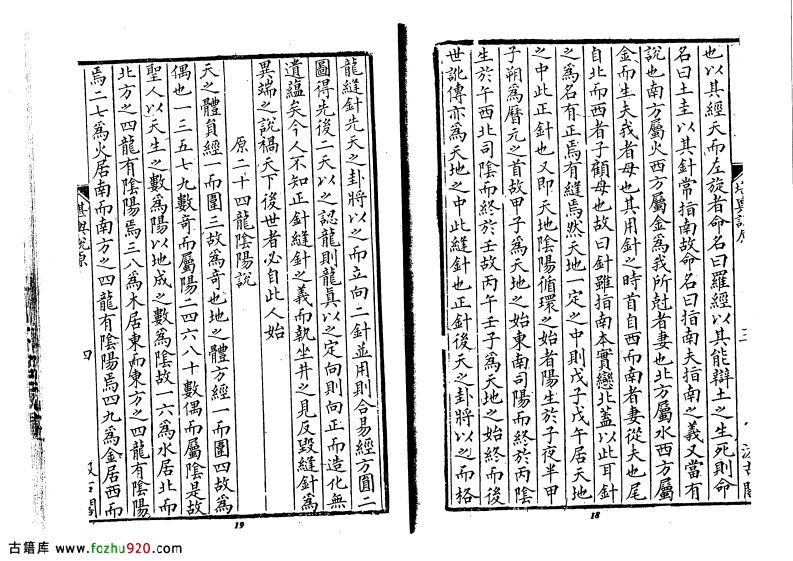 也以其經天而左旋者命名曰羅經以其能辯土之生死則命
名曰土圭以其針常指南故命名曰指南夫指南之義又當有
說也南方屬火西方屬金爲我所尅者妻也北方屬水西方屬
金而生夫我者母也其用針之時首自西而南者妻從夫也尾
自北而西者子顧母也故曰針雖指南本實戀北蓋以此耳針
之爲名有正焉有縫焉然天地一定之中則戊子戊午居天地
之中此正針也又即天地陰陽循環之始者陽生於子夜半甲
子朔爲曆元之首故甲子爲天地之始東南司陽而終於丙陰
生於午西北司陰而終於壬故丙午壬子爲天地之始終而後
世訛傳亦爲天地之中此縫針也正針後天之卦將以之而格
三
18
龍縫針先天之卦將以之而立向二針並用則合易經方圓二
圖得先後二天以之認龍則龍眞以之定向則向正而造化無
遺蘊矣今人不知正針縫針之義而執坐井之見反毀縫針爲
異端之說禍天下後世者必自此人始
原二十四龍陰陽說
天之體員經一而圍三故爲奇也地之體方經一而圍四故爲
偶也一三五七九數奇而屬陽二四六八十數偶而屬陰是故
聖人以天生之數爲陽以地成之數爲陰故一六爲水居北而
北方之四龍有陰陽焉三八爲木居東而東方之四龍有陰陽
焉二七爲火居南而南方之四龍有陰陽焉四九爲金居西而
堪輿說原
四
19
古籍库 www.fozhu920.com